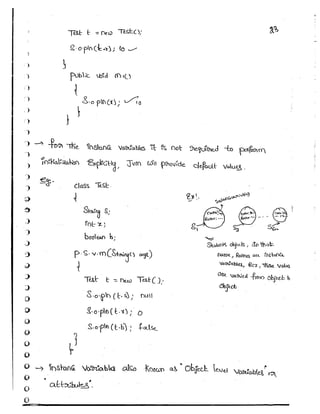 23
Test t = new Test();
S.o.pln(t.x); 10
}
public void m1()
{
S.o.pln(x); 10
}
}
→ for the instance variables it is not required to perform
initialization Explicitly, Jvm will provide default values.
Eg:-
class Test
{
String s;
int x;
boolean b;
p.s.v.m(String[] args)
{
Test t = new Test();
S.o.pln(t.s); null
S.o.pln(t.x); 0
S.o.pln(t.b); false
}
}
Ex:-
S1
S2
Student objects, so that
name, are instance
variables, the value
are varied from object to
object
→ Instance Variables also known as "Object level variables" or
"attributes".